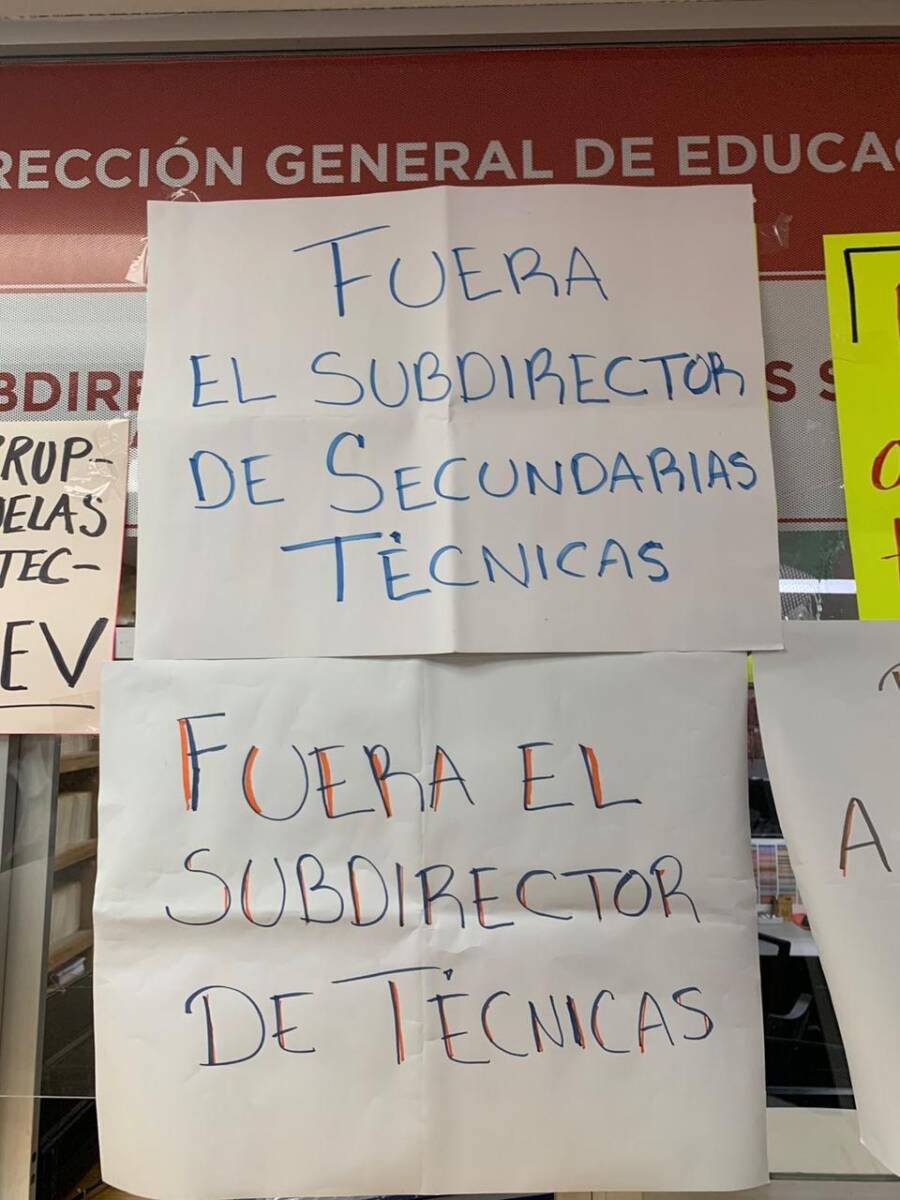 RECCIÓN GENERAL DE EDUCA
FUERA
EL SUBDIRECTOR
DE SECUNDARIAS
TÉCNICAS
BDIRE
S S
RRUP-
UELAS
TEC-
EV
FUERA EL
SUBDIRECTOR
DE TÉCNICAS
A